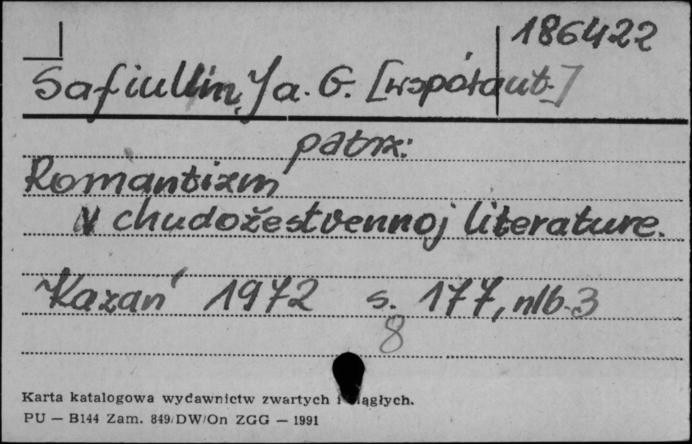 186422
Safiullin, Ja. G. [współaut.]
patrz:
Romantizm
v chudožestvennoj literature.
Kazan' 1972 s. 177, nlb. 3
8
Karta katalogowa wydawnictw zwartych i ciągłych.
PU — B144 Zam. 849/DW/On ZGG — 1991